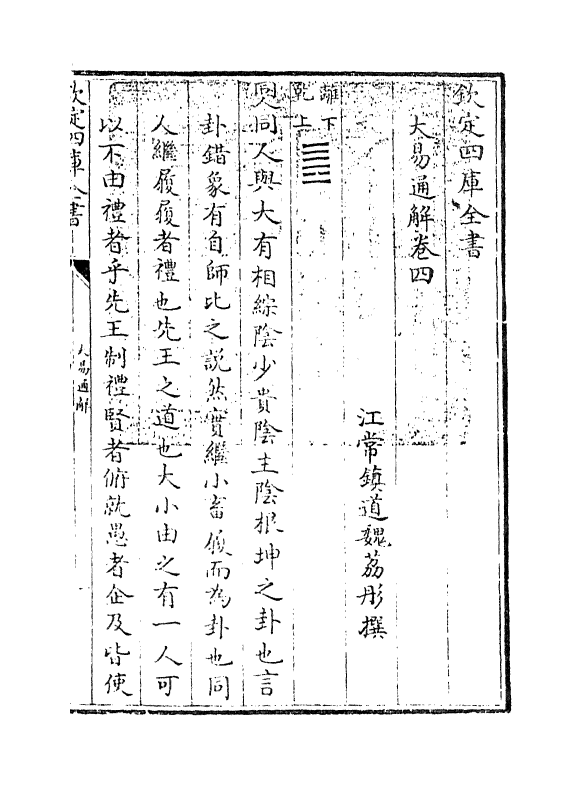 欽定四庫全書
大易通解卷四
江常鎮道魏荔彤撰
離下
乾上
㷼同人與大有相綜陰少貴陰主陰根坤之卦也言
卦錯象有自師比之説然實繼小畜履而為卦也同
人繼履履者禮也先王之道也大小由之有一人可
以不由禮者乎先王制禮賢者俯就愚者企及皆使
欽定四庫全書
大易通解